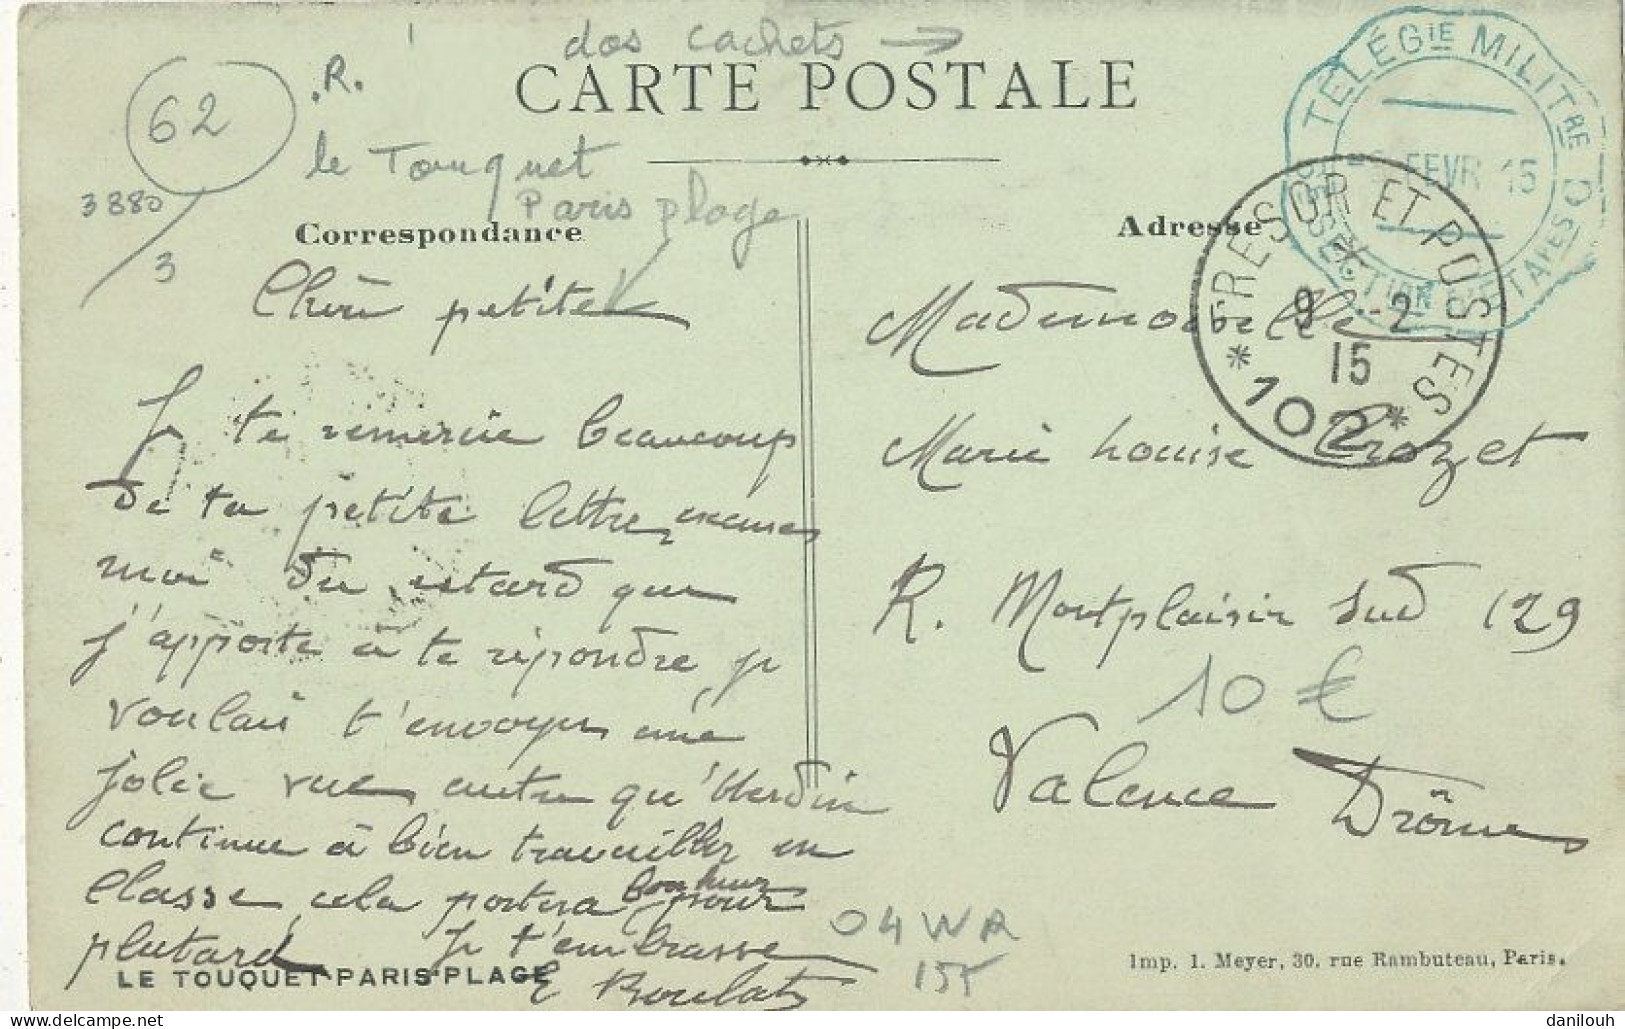 dos cachets →
CARTE POSTALE
62
.R.
le Touquet
Paris plage
3880
3
TÉLÉGIE MILITRE
FEVR 15
SECTION
TRESOR ET POSTES
9 -2
15
* 102 *
Correspondance
Adresse
Chère petite
Je te remercie beaucoup
de ta petite lettre, excuses
moi du retard que
j'apporte à te répondre, je
voulais t'envoyer une
jolie vue autre qu'
continue à bien travailler en
Classe, cela portera bonheur pour
plutard Je t'embrasse
E Boulat
Mademoiselle
Marie Louise Crozet
R. Montplaisir Sud 129
10 €
Valence Drôme
04 WR
155
LE TOUQUET-PARIS-PLAGE
Imp. I. Meyer, 30, rue Rambuteau, Paris.
delcampe.net
danilouh